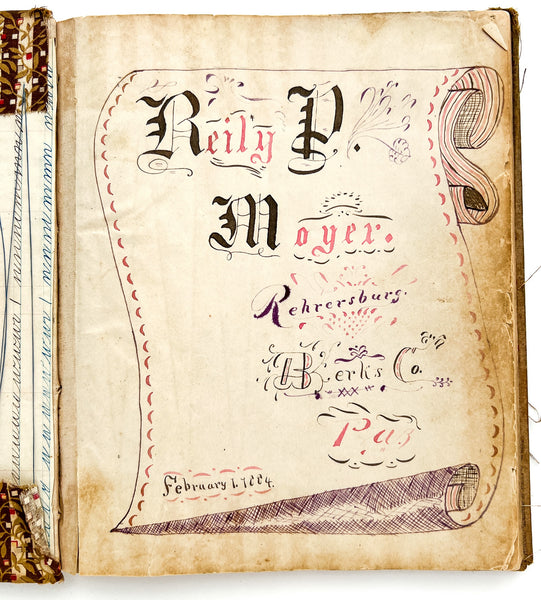 Reily P.
Moyer.
Rehrersburg.
Berks Co.
Pa.
February 1. 1884.